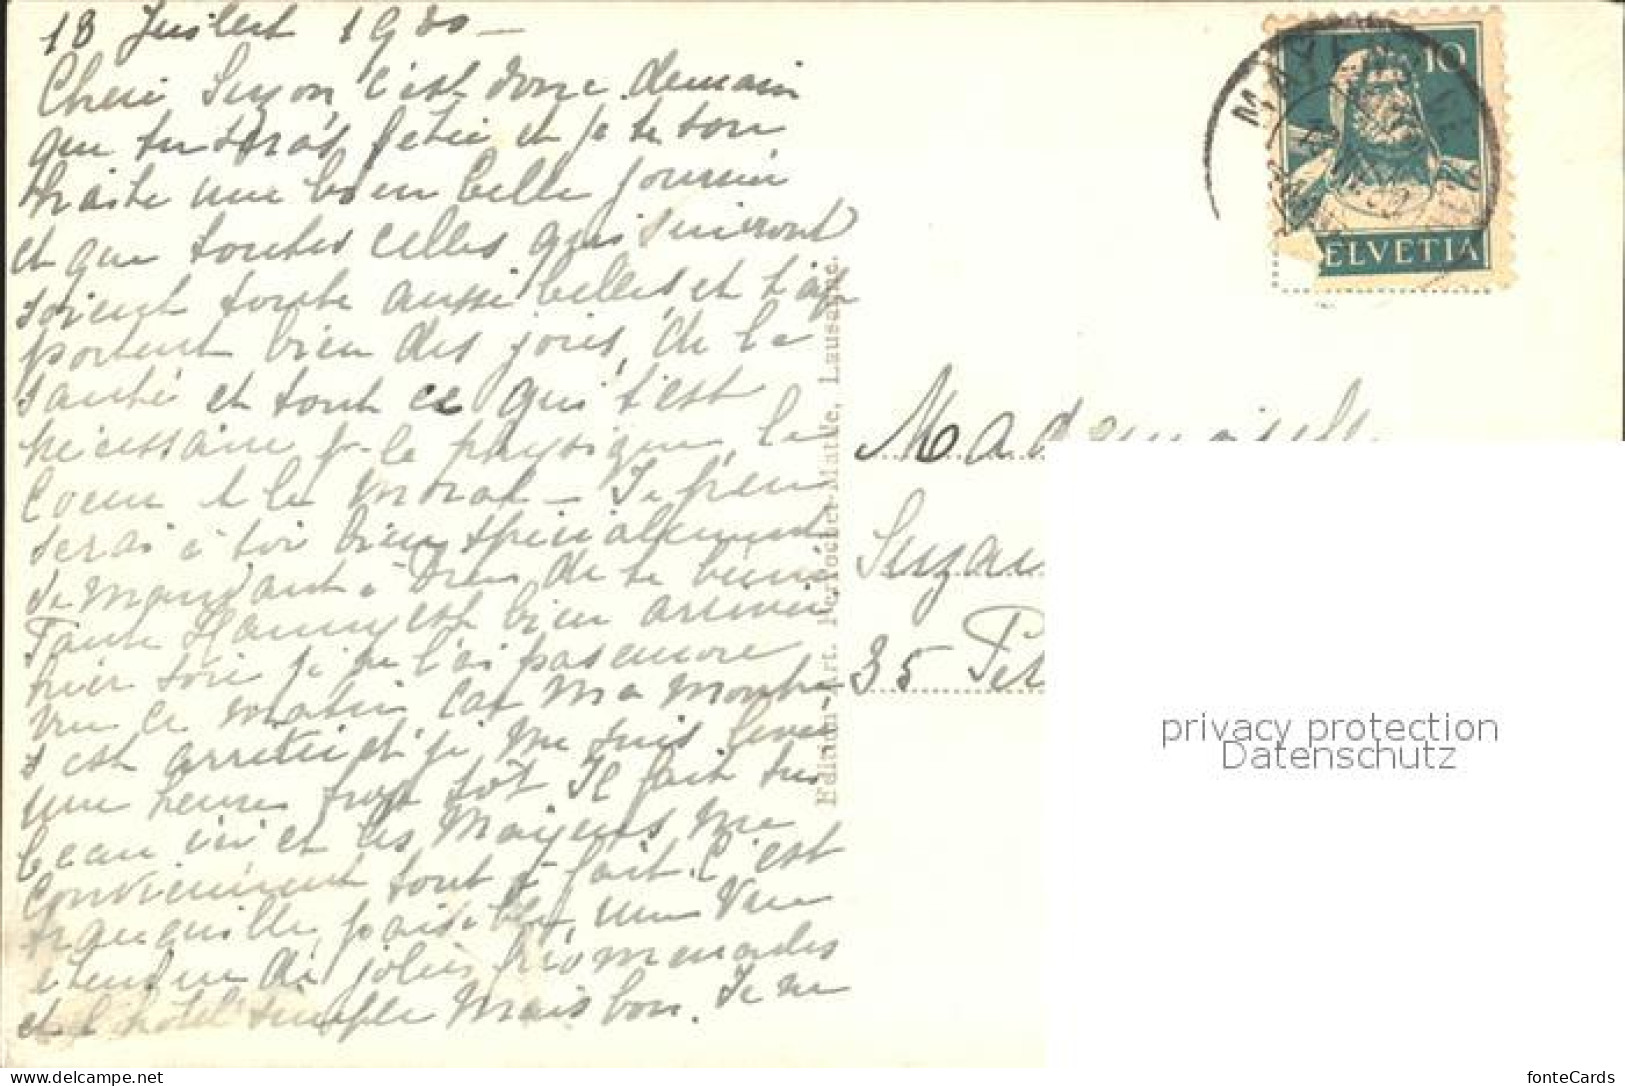 18 Juillet 1930 —
Chere Suzon, c'est donc demain
que tu seras fêtée et je te sou
haite une bien belle journée
et que toutes celles qui suivront
soient toute aussi belles et t'ap
portent bien des joies, de la
santé et tout ce qui t'est
nécessaire p. le physique, le
coeur et le moral — Je pen
serai à toi bien spécialement
demandant à Dieu de te bénir
Tante Hanny est bien arrivée
hier soir je ne l'ai pas encore
vue ce matin car ma montre
s'est arrêtée et je me suis levée
une heure trop tôt Il fait très
beau ici et les Mayens me
conviennent tout à fait. C'est
tranquille, paisible, une vue
étendue de jolies promenades
et l'hôtel simple mais bon. Je ne
Edition-Art. Perrochet-Matile, Lausanne.
10
HELVETIA
Mademoiselle
Suzan
35 Pet
privacy protection
Datenschutz
www.delcampe.net
fonteCards